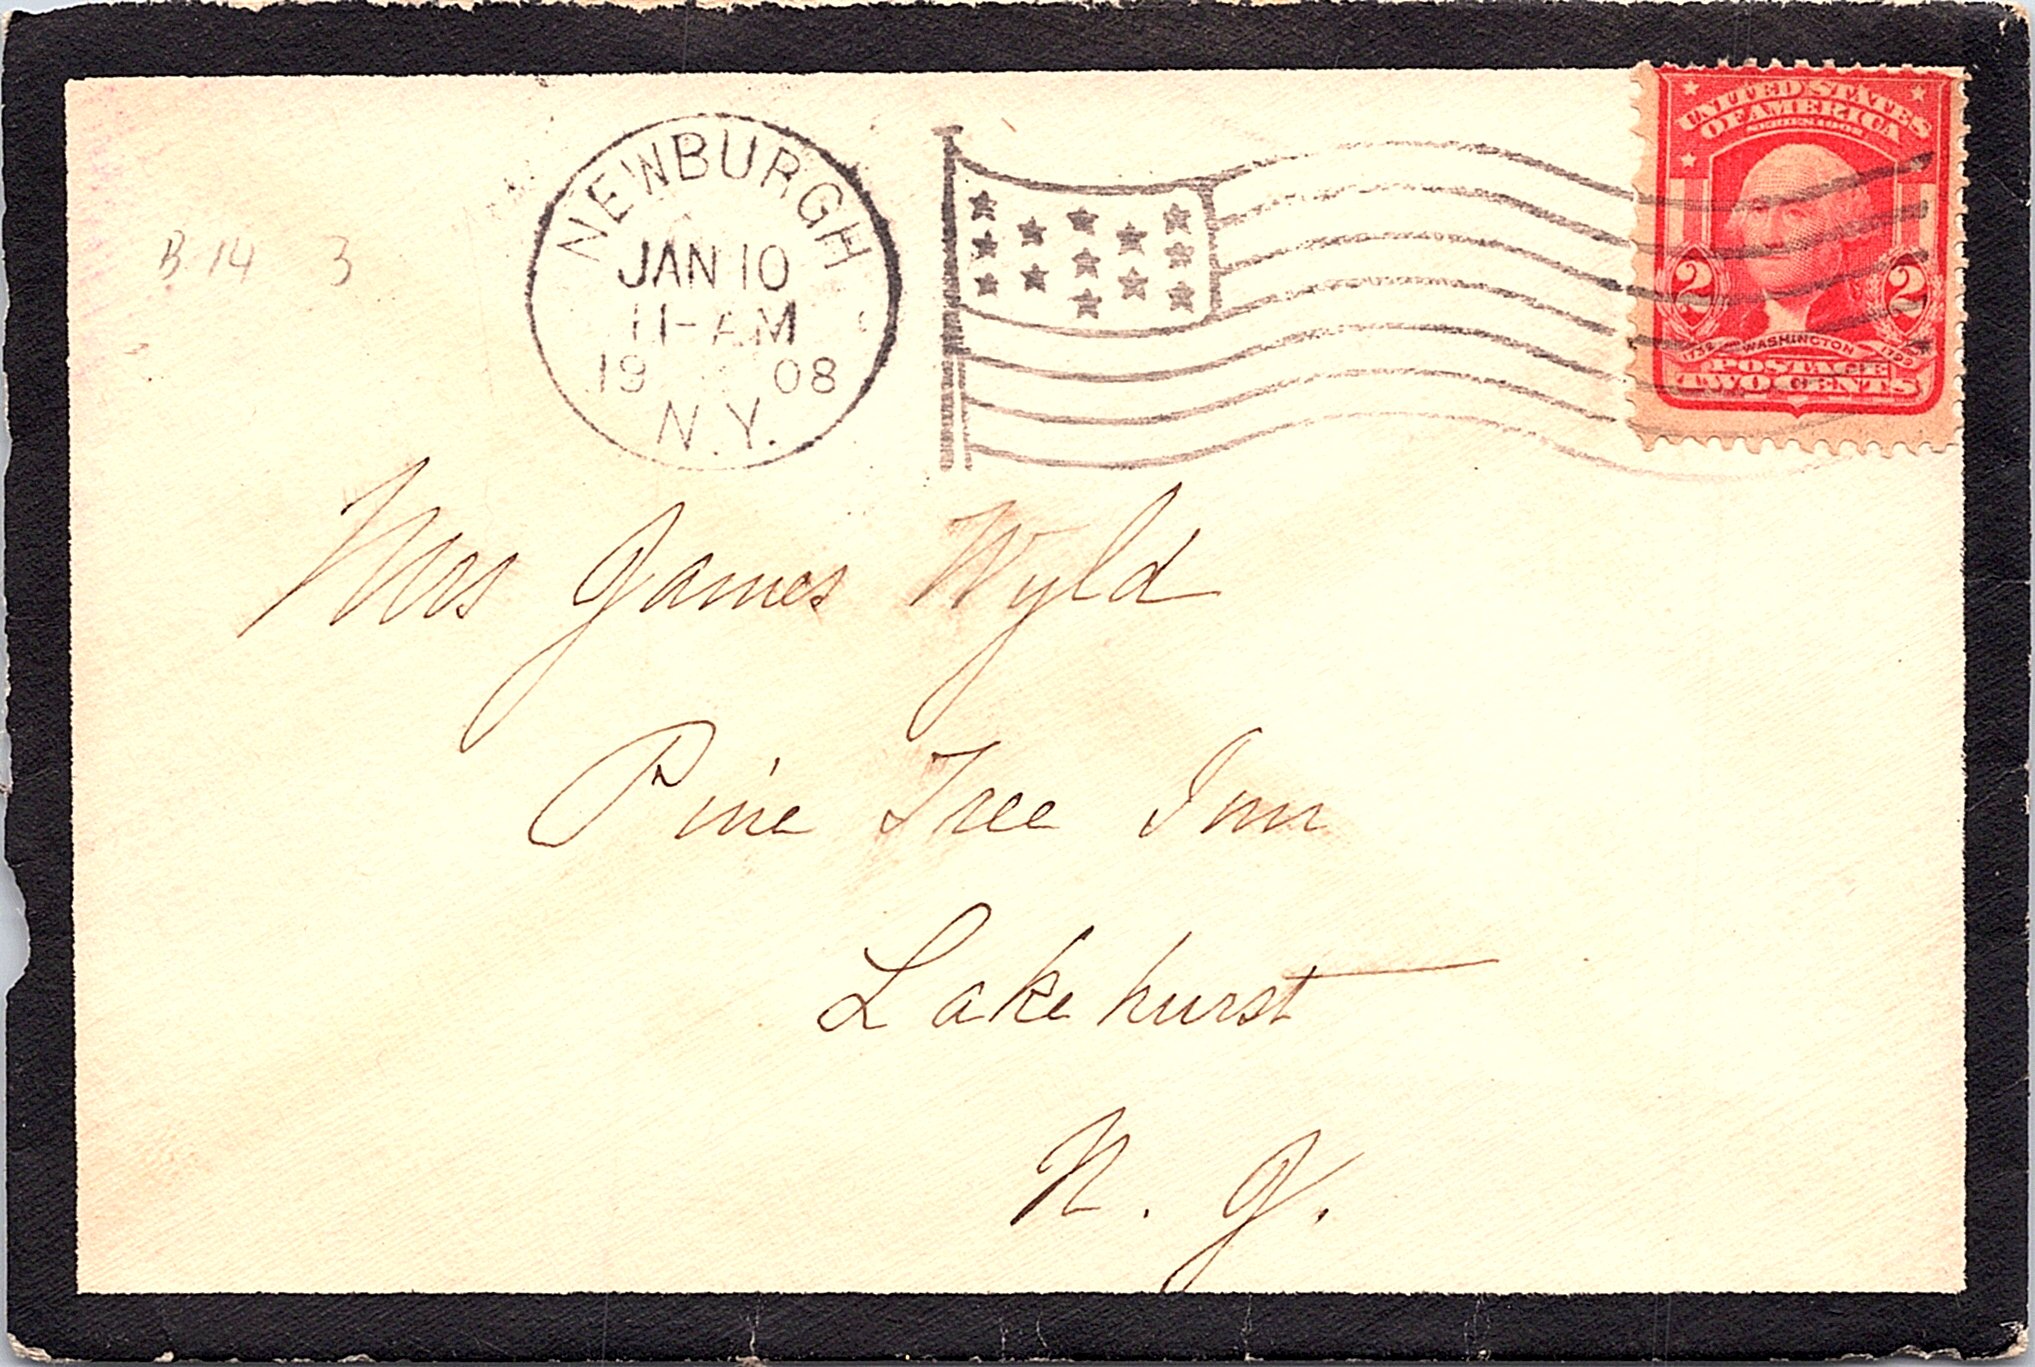 B 14 3
NEWBURGH
JAN 10
11-AM
19 08
N.Y.
UNITED STATES
OF AMERICA
SERIES 1902
2 2
1732 WASHINGTON 1799
POSTAGE
TWO CENTS
Mrs James Wyld
Pine Tree Inn
Lakehurst
N. J.